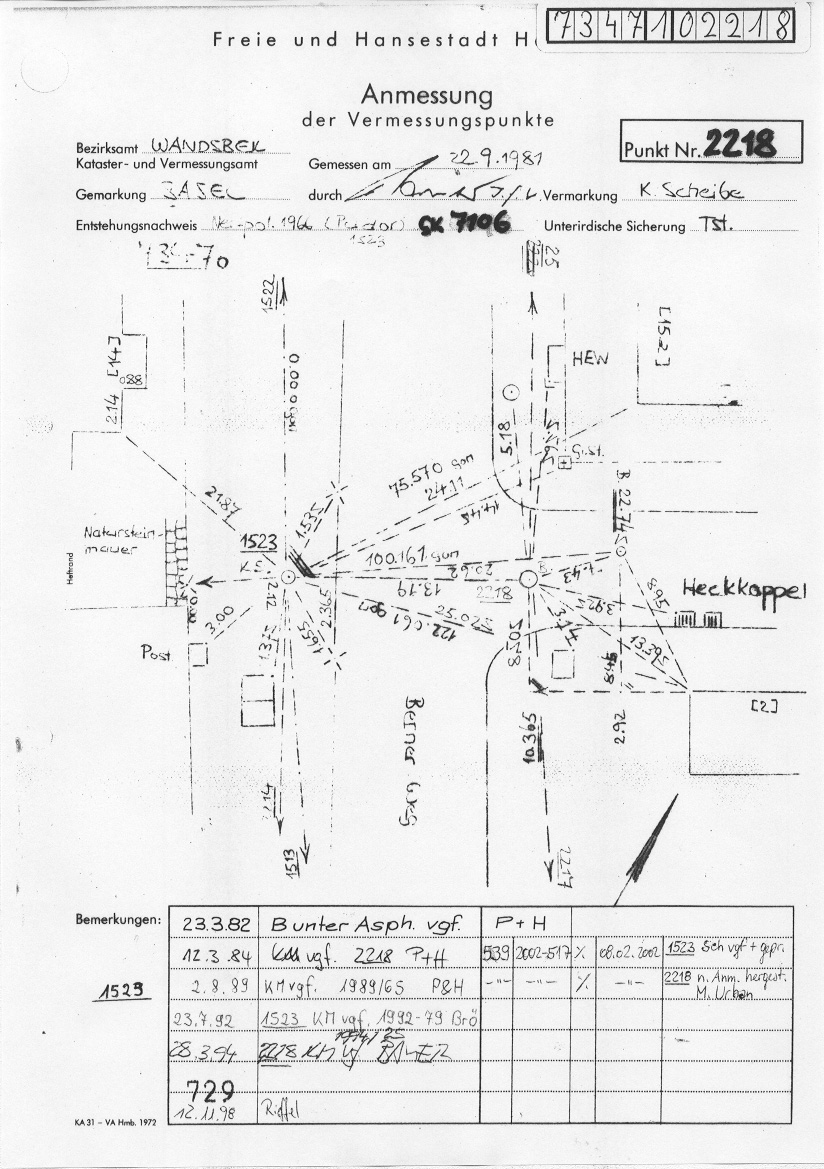 7347102218
Freie und Hansestadt
Anmessung
der Vermessungspunkte
Bezirksamt WANDSBEK
Kataster- und Vermessungsamt
Gemessen am 22.9.1981
Punkt Nr. 2218
Gemarkung
durch
Vermarkung K. Scheibe
Entstehungsnachweis 1966 GK 7106
1523
Unterirdische Sicherung Tst.
70
1522
25
[14]
0.88
2.14
0.000 gon
HEW
[15.2]
5.18
G.st.
75.570 gon
24.11
14.45
21.87
1.535
22.745
B
Naturstein-
mauer
Heftrand
1523
KS
100.161 gon
20.62
13.19
2218
B
7.43
8.95
Heckkoppel
3.925
10.00
3.00
2.12
2.365
1.655
122.061 gon
25.025
8.205
3.74
13.395
8.45
Post
1.375
Berner Weg
10.365
2.92
[2]
2214
1513
2217
Bemerkungen:
1523
23.3.82 B unter Asph. vgf. P+H
12.3.84 KM vgf. 2218 P+H 539 2002-517 % 08.02.2002 1523 Sch vgf + gepr.
2.8.89 KM vgf. 1989/65 P&H -"- -"- % -"- 2218 n. Anm. hergest.
M. Urban
23.7.92 1523 KM vgf. 1992-79 Brö
28.3.94 2218 KM
729
12.11.98 Riffel
KA 31 – VA Hmb. 1972